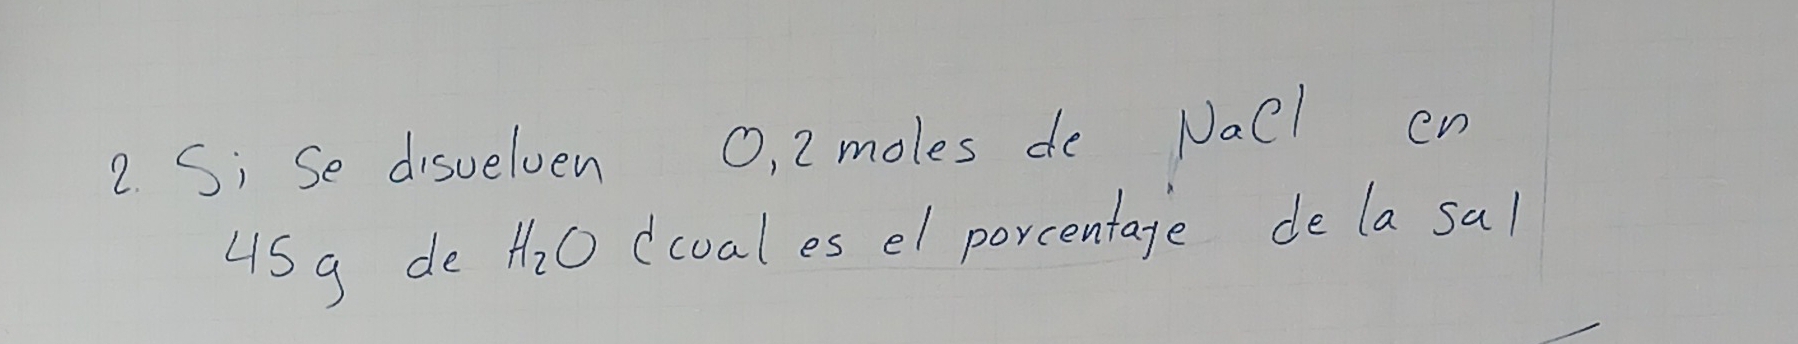 2. Si Se disuelven 0,2 moles de NaCl en
45g de H₂O ¿cual es el porcentaje de la sal